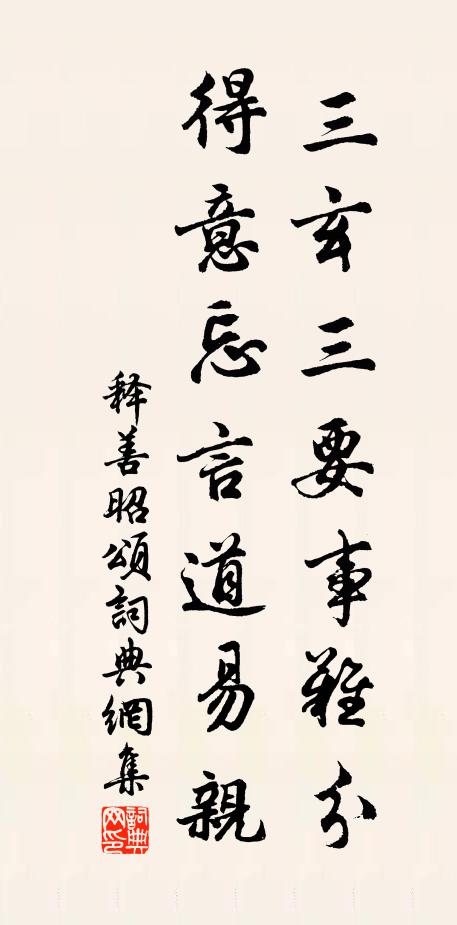 三玄三要事難分
得意忘言道易親
释善昭頌詞典網集
詞典網印